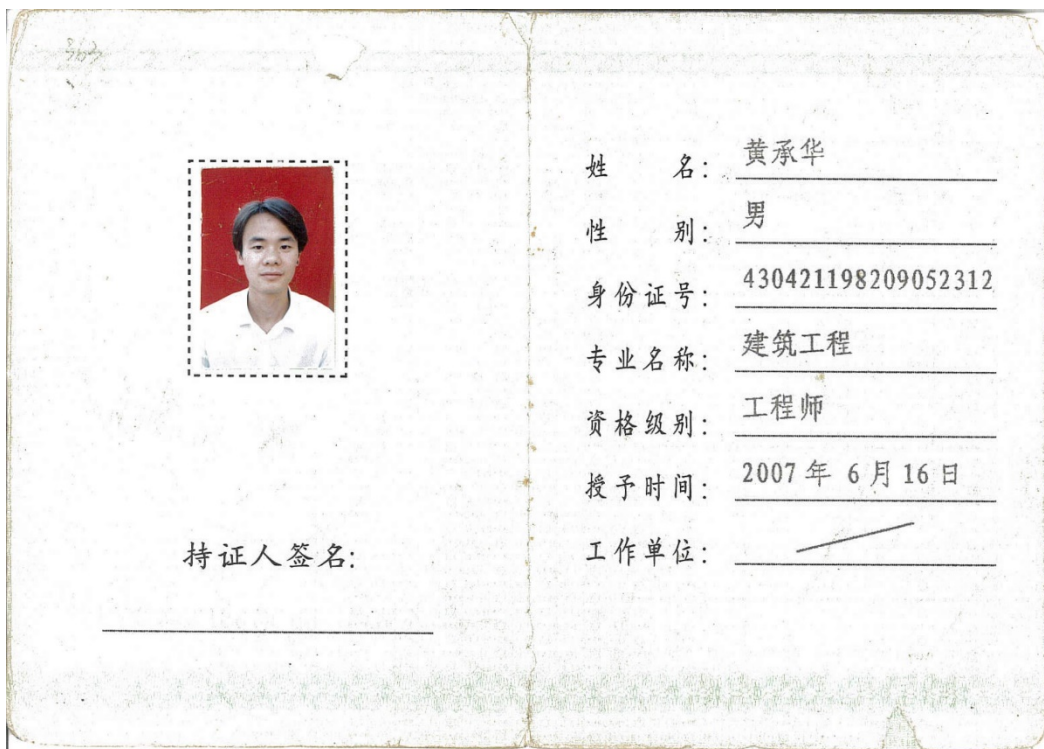 363
持证人签名:
姓 名: 黄承华
性 别: 男
身份证号: 430421198209052312
专业名称: 建筑工程
资格级别: 工程师
授予时间: 2007 年 6 月 16 日
工作单位: